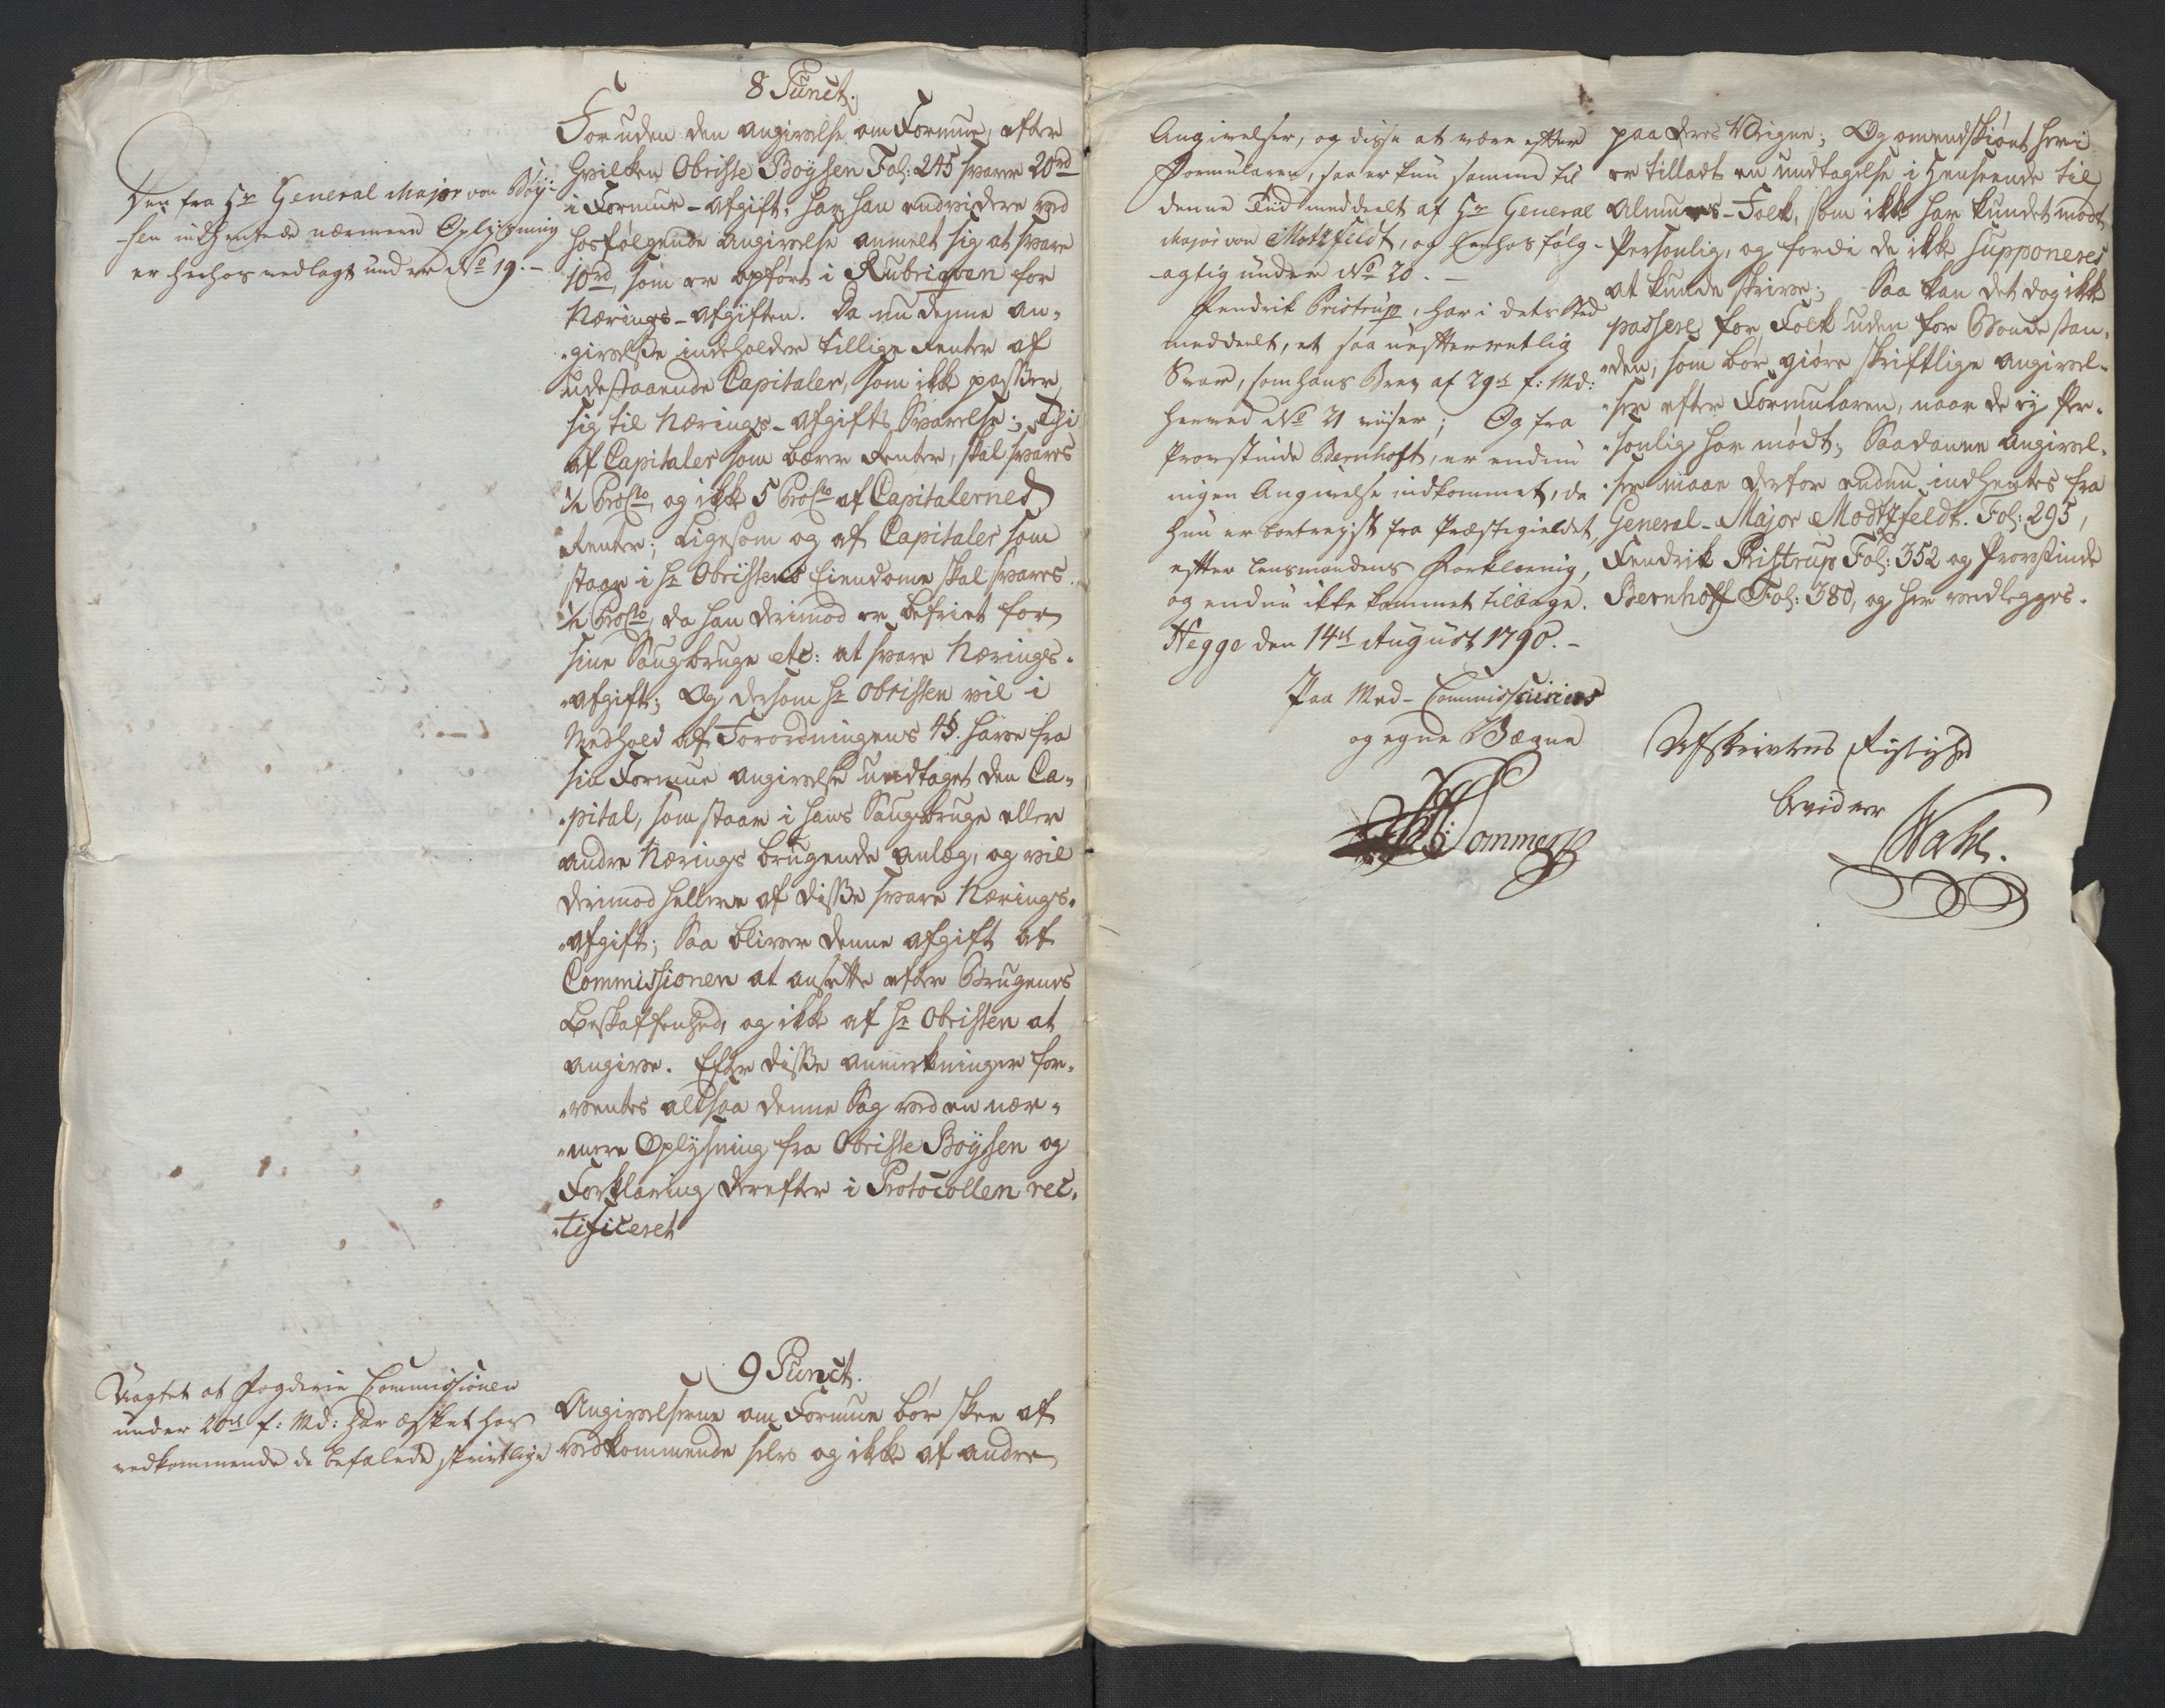 8 Punct.
Foruden den angivelse om Formue, efter
hvilken Obriste Boysen Fol: 245 svarer 20rd
i Formue-afgift, har han endvidere ved
hosfølgende angivelse anmelt sig at svare
10rd, som er opført i Rubriqven for
Nærings-afgiften. Da nu denne an-
-givelse indeholder tillige Renter af
udestaaende Capitaler, som ikke passer
sig til Nærings-afgifts Svarelse; Thi
af Capitaler som bærer Renter, skal svares
½ ProCto og ikke 5 ProCto af Capitalernes
Renter; Ligesom og af Capitaler som
staar i Hr Obristens Eiendomme skal svares
½ ProCto, da han derimod er befriet for
sine Saugbruge etc: at svare Nærings-
-afgift; Og dersom Hr Obristen vil i
Medhold af Forordningens 4§. have fra
sin Formue angivelse undtaget den Ca-
-pital, som staar i hans Saugbruge eller
andre Nærings brugende anlæg, og vil
derimod hellere af disse svare Nærings-
-afgift; Saa bliver denne afgift af
Commissionen at ansette efter Brugenes
Beskaffenhed, og ikke af Hr Obristen at
angive. Efter disse anmerkninger for-
-ventes altsaa denne Sag ved en nær-
-mere Oplysning fra Obriste Boysen og
Forklaring derefter i Protocollen rec-
-tificeret
Den fra Hr General Major von Boy-
-sen indhentede nærmere Oplysning
er herhos vedlagt under No 19.-
9 Punct.
Angivelserne om Formue bør skee af
vedkommende selv og ikke af andre
Uagtet at Fogderie Commissionen
under 20de f: Md: har æsket hos
vedkommende de befalede skrivtlige
Angivelser, og disse at være efter
Formularen, saa er kun samme til
denne Tiid meddeelt af Hr General
Major von Motzfeldt, og herhos følg-
-agtig under No 20.-
Fendrik Pristrup, har i dets Sted
meddeelt, et saa uefterretlig
Svar, som hans Brev af 29de f: Md:
herved No 21 viiser; Og fra
Provstinde Bernhoft, er endnu
ingen Angivelse indkommet, da
hun er bortreyst fra Præstegieldet,
efter Lensmandens Forklaring,
og endnu ikke kommet tilbage.
Hegge den 14de August 1790.-
Paa Med-Commissairiers
og egne Vegne
Sommer
paa deres Veigne; Og omendskiønt heri
er tilladt en undtagelse i Henseende til
Almues-Folk, som ikke har kundet mødt
Personlig, og fordi de ikke supponeres
at kunde skrive; Saa kan det dog ikke
passere for Folk uden for Bondestan-
-den, som bør giøre skriftlige angivel-
-ser efter Formularen, naar de ej Per-
-sonlig har mødt; Saadanne angivel-
-ser maae derfor endnu indhentes fra
General-Major Modtzfeldt. Fol: 295,
Fendrik Pristrup Fol: 352 og Provstinde
Bernhoff Fol: 380, og her vedlegges.
Afskrivtens Rigtighed
bevidner
Wahl.